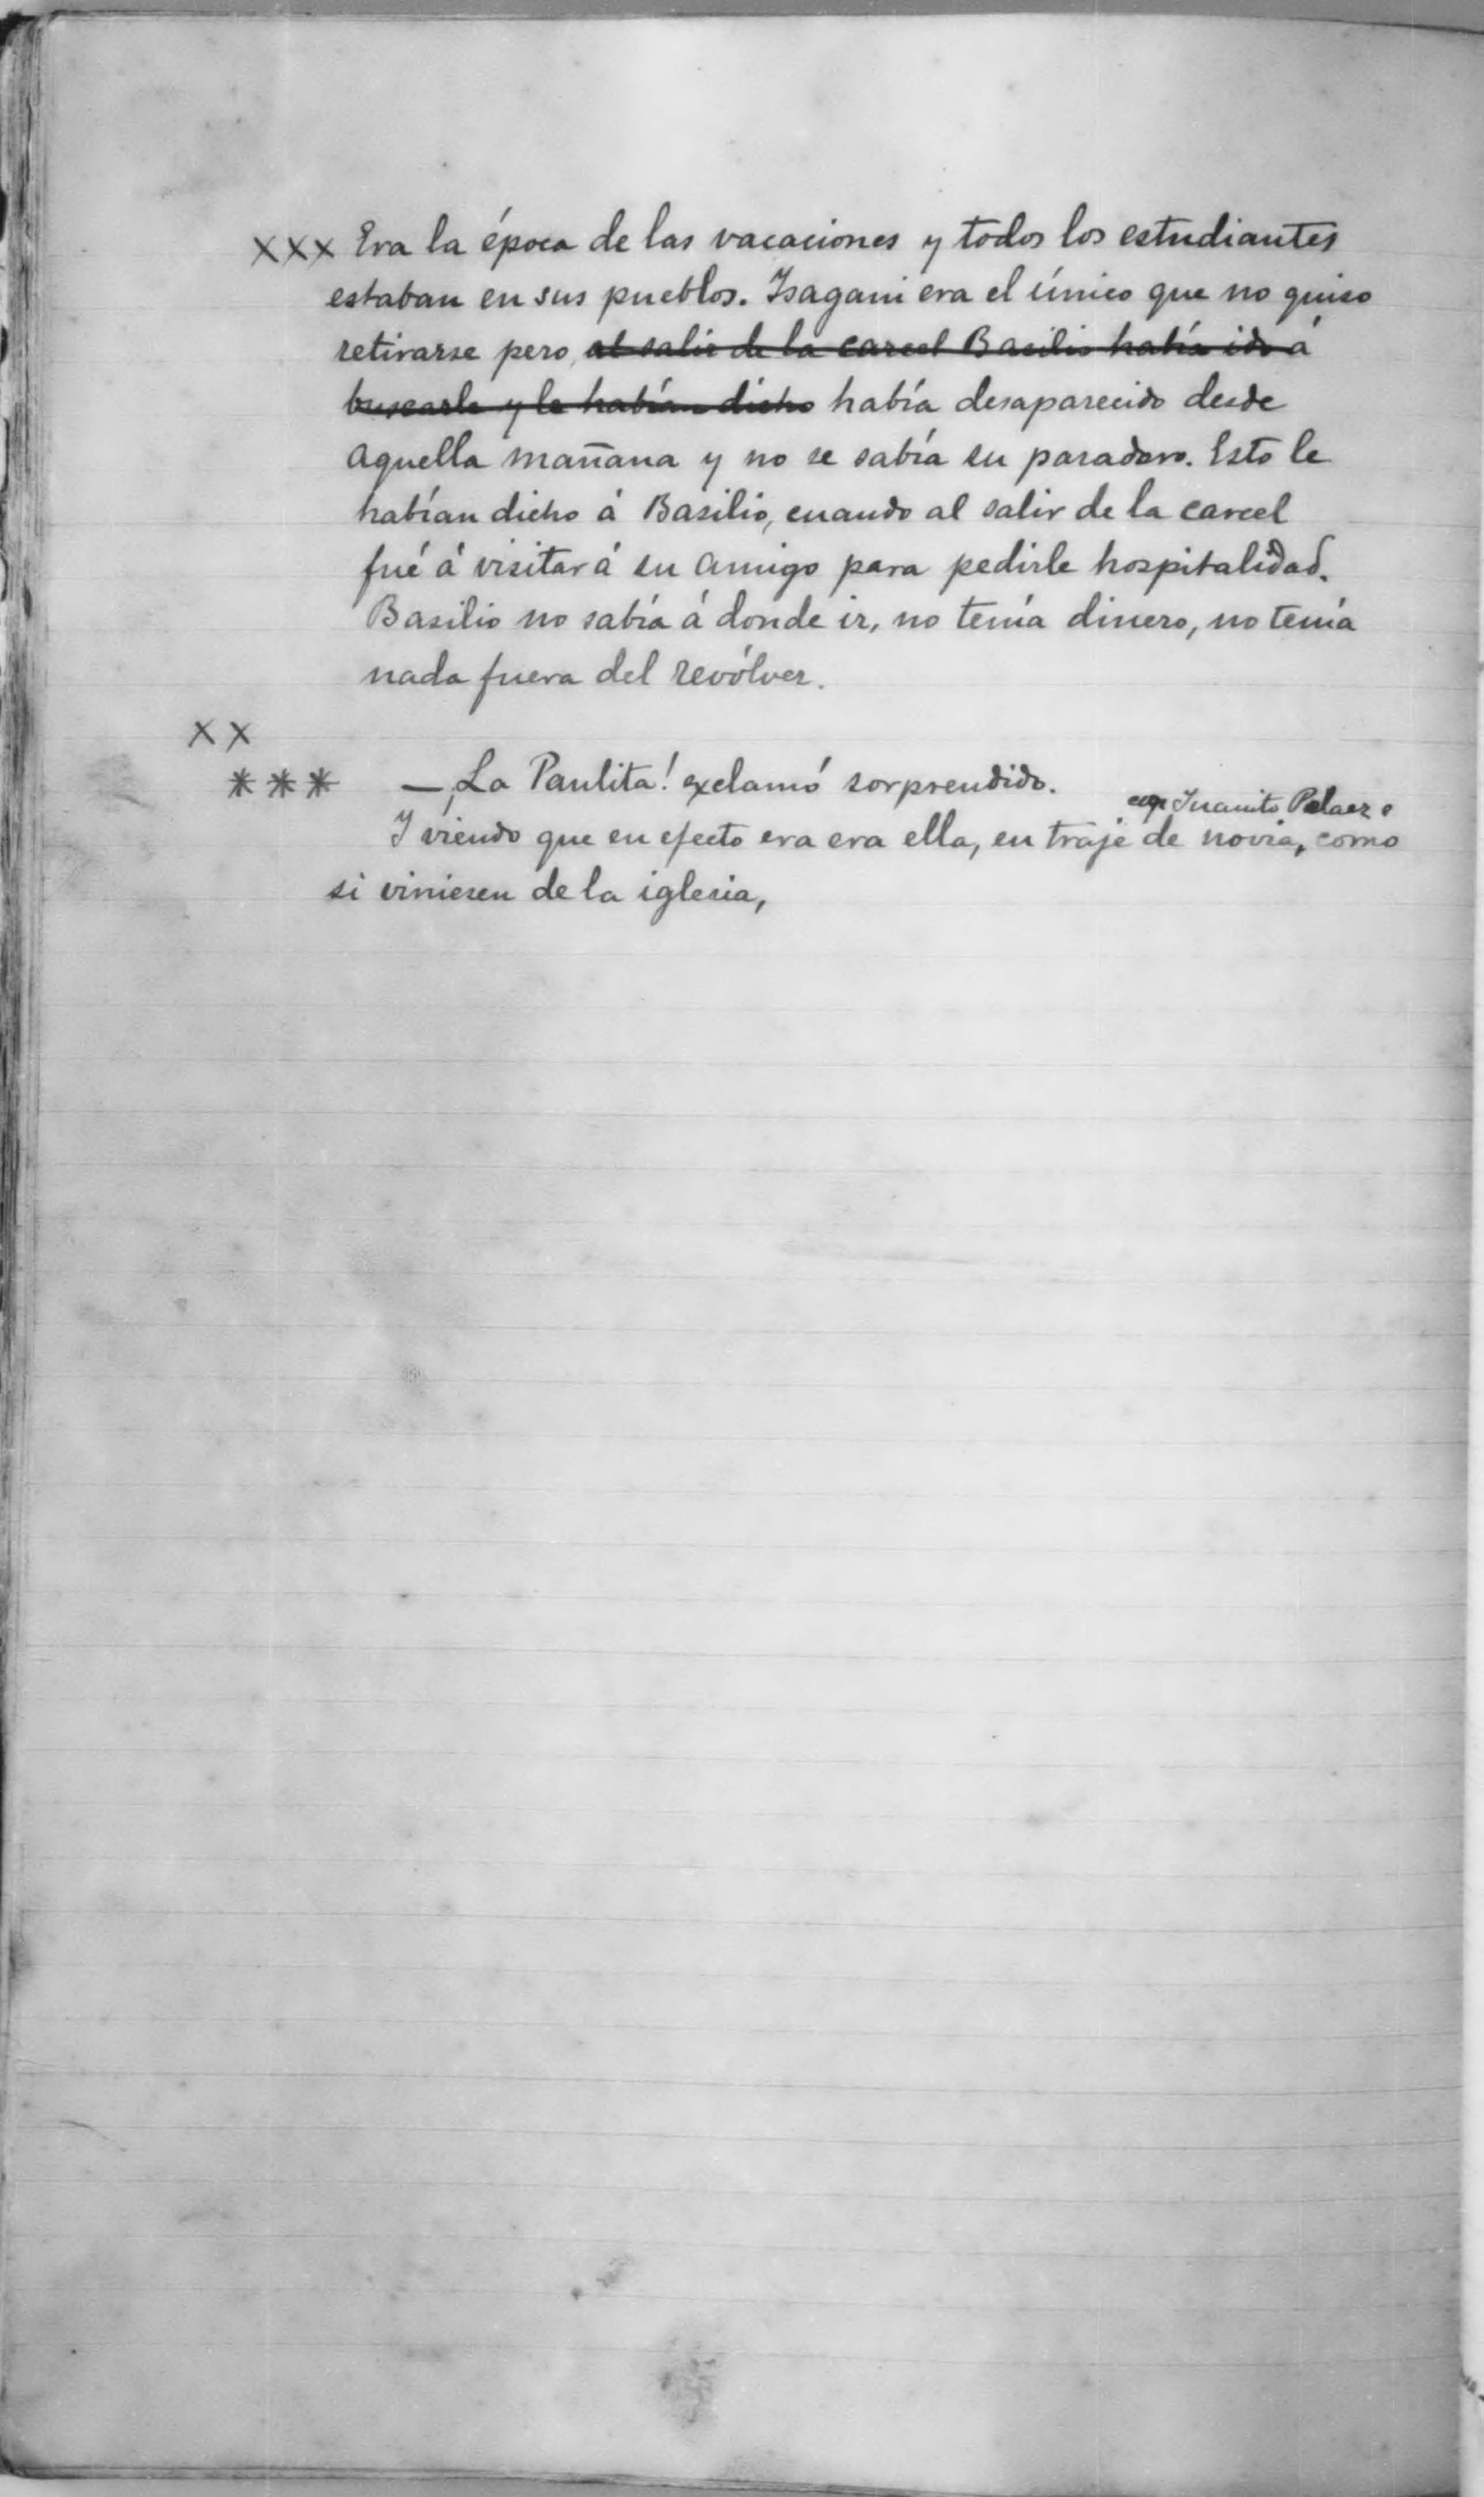 XXX Era la época de las vacaciones y todos los estudiantes
estaban en sus pueblos. Isagani era el único que no quiso
retirarse pero al salir de la carcel Basilio había ido á
buscarle y le habían dicho había desaparecido desde
aquella mañana y no se sabía su paradero. Esto le
habían dicho á Basilio, cuando al salir de la carcel
fué á visitar á su amigo para pedirle hospitalidad.
Basilio no sabía á donde ir, no tenía dinero, no tenía
nada fuera del revólver.
XX
*** —¡La Paulita! exclamó sorprendido.
con Juanito Pelaez
Y viendo que en efecto era era ella, en traje de novia, como
si viniesen de la iglesia,